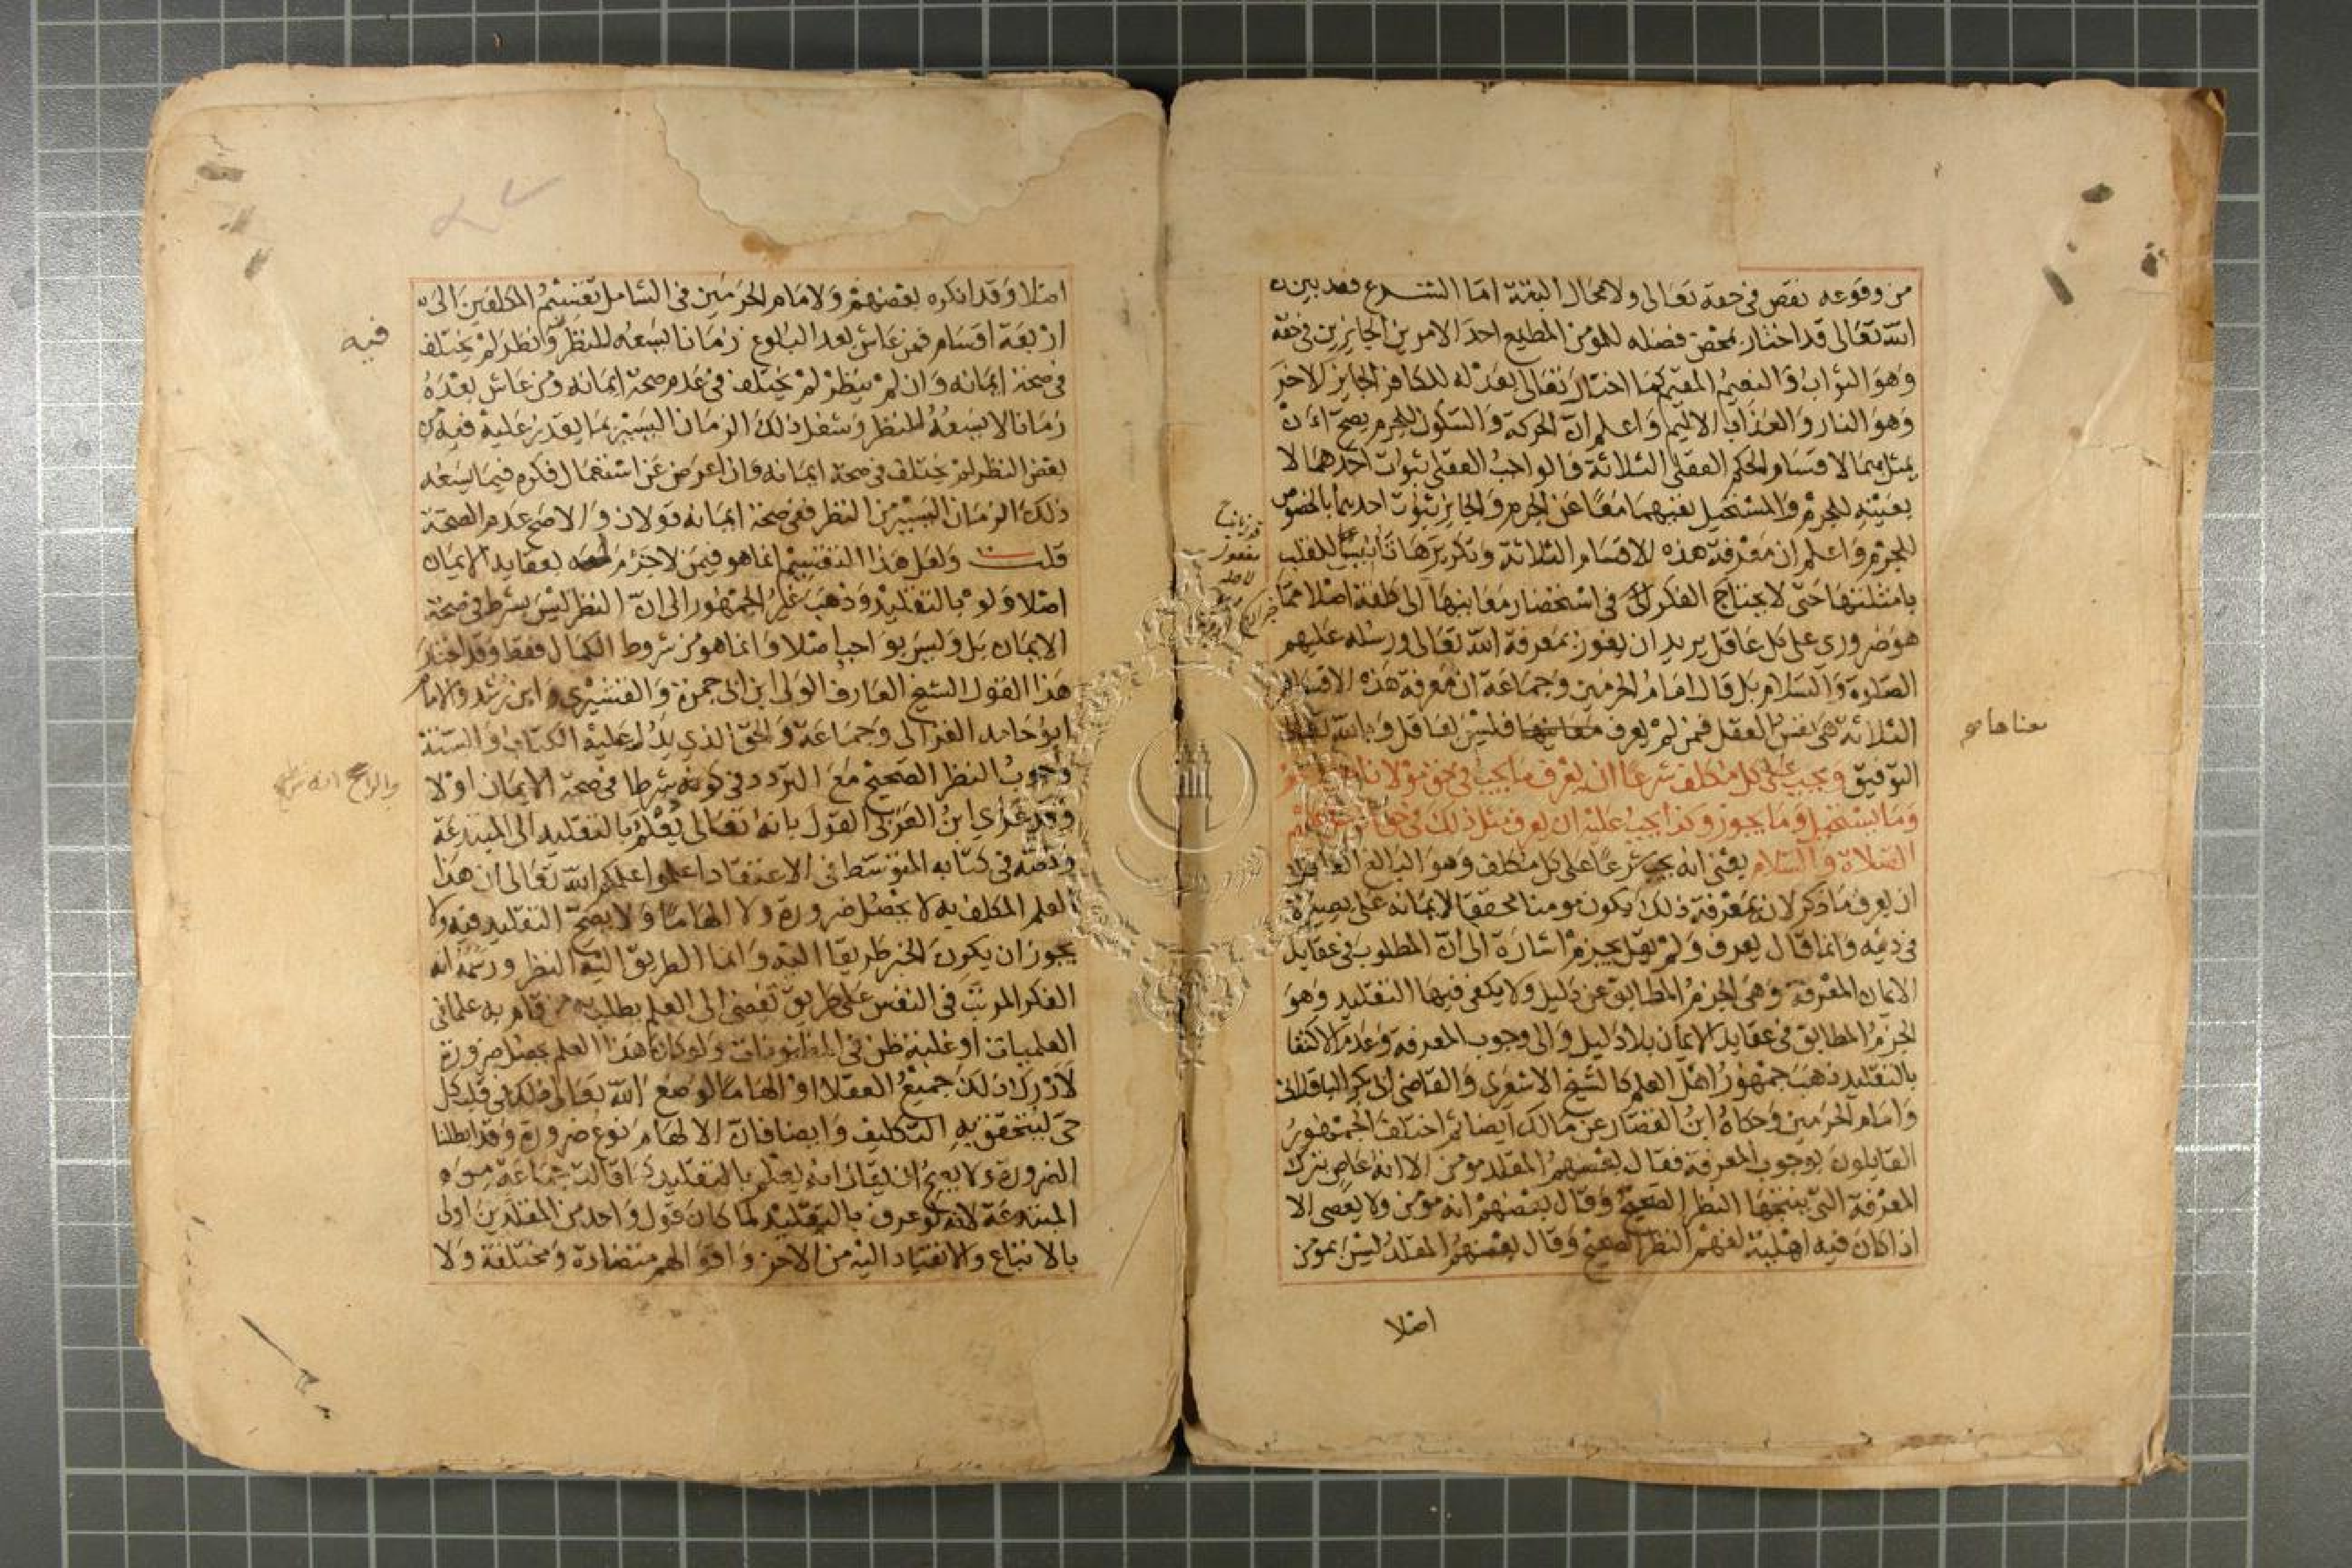 من وقوعه نقص في حقه تعالى ولا محال البتة اما الشرع فقد بين ان
الله تعالى قد اختار بمحض فضله للمؤمن المطيع احد الامرين الجايزين في حقه
وهو الثواب والنعيم المقيم كما اختار تعالى بعدله للكافر الجايز الاخر
وهو النار والعذاب الاليم واعلم ان الحركة والسكون للجرم يصح ان
يمثل بهما لاقسام الحكم العقلي الثلاثة فالواجب العقلي ثبوت احدهما لا
بعينه للجرم والمستحيل نفيهما معا عن الجرم والجايز ثبوت احديهما بالخصوص
للجرم واعلم ان معرفة هذه الاقسام الثلاثة وتكريرها تانيسا للقلب
بامثلتها حتى لا يحتاج الفكر في استحضار معانيها الى كلفة اصلا مما
هو ضروري على كل عاقل يريد ان يفوز بمعرفة الله تعالى ورسله عليهم
الصلوة والسلام بل قال امام الحرمين وجماعة ان معرفة هذه الاقسام
الثلاثة هى نفس العقل فمن لم يعرف معانيها فليس بعاقل وبالله تعالى
التوفيق ويجب على كل مكلف شرعا ان يعرف ما يجب في حق مولانا
وما يستحيل وما يجوز وكذا يجب عليه ان يعرف مثل ذلك في حق الرسل عليهم
الصلاة والسلام يعني انه يجب شرعا على كل مكلف وهو البالغ العاقل
ان يعرف ما ذكر لان بمعرفة ذلك يكون مومنا محققا لايمانه على بصيرة
في دينه وانما قال يعرف ولم يقل يجزم اشارة الى ان المطلوب في عقايد
الايمان المعرفة وهى الجزم المطابق عن دليل ولا يكفي فيها التقليد وهو
الجزم المطابق في عقايد الايمان بلا دليل والى وجوب المعرفة وعدم الاكتفا
بالتقليد ذهب جمهور اهل العلم كالشيخ الاشعري والقاضي ابي بكر الباقلاني
وامام الحرمين وحكاه ابن القصار عن مالك ايضا ثم اختلف الجمهور
القايلون بوجوب المعرفة فقال بعضهم المقلد مومن الا انه عاص بترك
المعرفة التي ينتجها النظر الصحيح وقال بعضهم انه مومن ولا يعصى الا
اذا كان فيه اهلية لفهم النظر الصحيح وقال بعضهم المقلد ليس بمومن
اصلا
معناها م
اصلا وقد انكره بعضهم ولامام الحرمين في الشامل تقسيم المكلفين الى
اربعة اقسام فمن عاش بعد البلوغ زمانا يسعه للنظر ونظر لم يختلف
في صحة ايمانه وان لم ينظر لم يختلف في عدم صحة ايمانه ومن عاش بعده
زمانا لا يسعه للنظر وشغل ذلك الزمان اليسير بما يقدر عليه فيه من
بعض النظر لم يختلف في صحة ايمانه وان اعرض عن استعمال فكره فيما يسعه
ذلك الزمان اليسير من النظر ففي صحة ايمانه قولان والاصح عدم الصحة
قلت ولعل هذا التقسيم انما هو فيمن لا جزم معه بعقايد الايمان
اصلا ولو بالتقليد وذهب غير الجمهور الى ان النظر ليس بشرط في صحة
الايمان بل وليس بواجب اصلا وانما هو من شروط الكمال فقط وقد اختار
هذا القول الشيخ العارف الولى ابن ابي جمرة والقشيري وابن رشد والامام
ابو حامد الغزالي وجماعة والحق الذي يدل عليه الكتاب والسنة
وجوب النظر الصحيح مع التردد في كونه شرطا في صحة الايمان او لا
وقد عزى ابن العربي القول بانه تعالى يعلم بالتقليد الى المبتدعة
ونصه في كتابه المتوسط في الاعتقاد اعلموا علمكم الله تعالى ان هذا
العلم المكلف به لا يحصل ضرورة ولا الهاما ولا يصح التقليد فيه ولا
يجوز ان يكون الخبر طريقا اليه وانما الطريق اليه النظر ورسمه انه
الفكر المرتب في النفس على طريق تفضى الى العلم يطلب به من قام به علما في
العلميات او غلبة ظن في المظنونات ولو كان هذا العلم يحصل ضرورة
لادرك ذلك جميع العقلا او الهاما لوضع الله تعالى ذلك في قلب كل
حى ليتحقق به التكليف وايضا فان الالهام نوع ضرورة وقد ابطلنا
الضرورة ولا يصح ان يقال انه يعلم بالتقليد كما قالت جماعة من
المبتدعة لانه لو عرف بالتقليد لما كان قول واحد من المقلدين اولى
بالاتباع والانقياد اليه من الاخر واقوالهم متضادة ومختلفة ولا
فيه